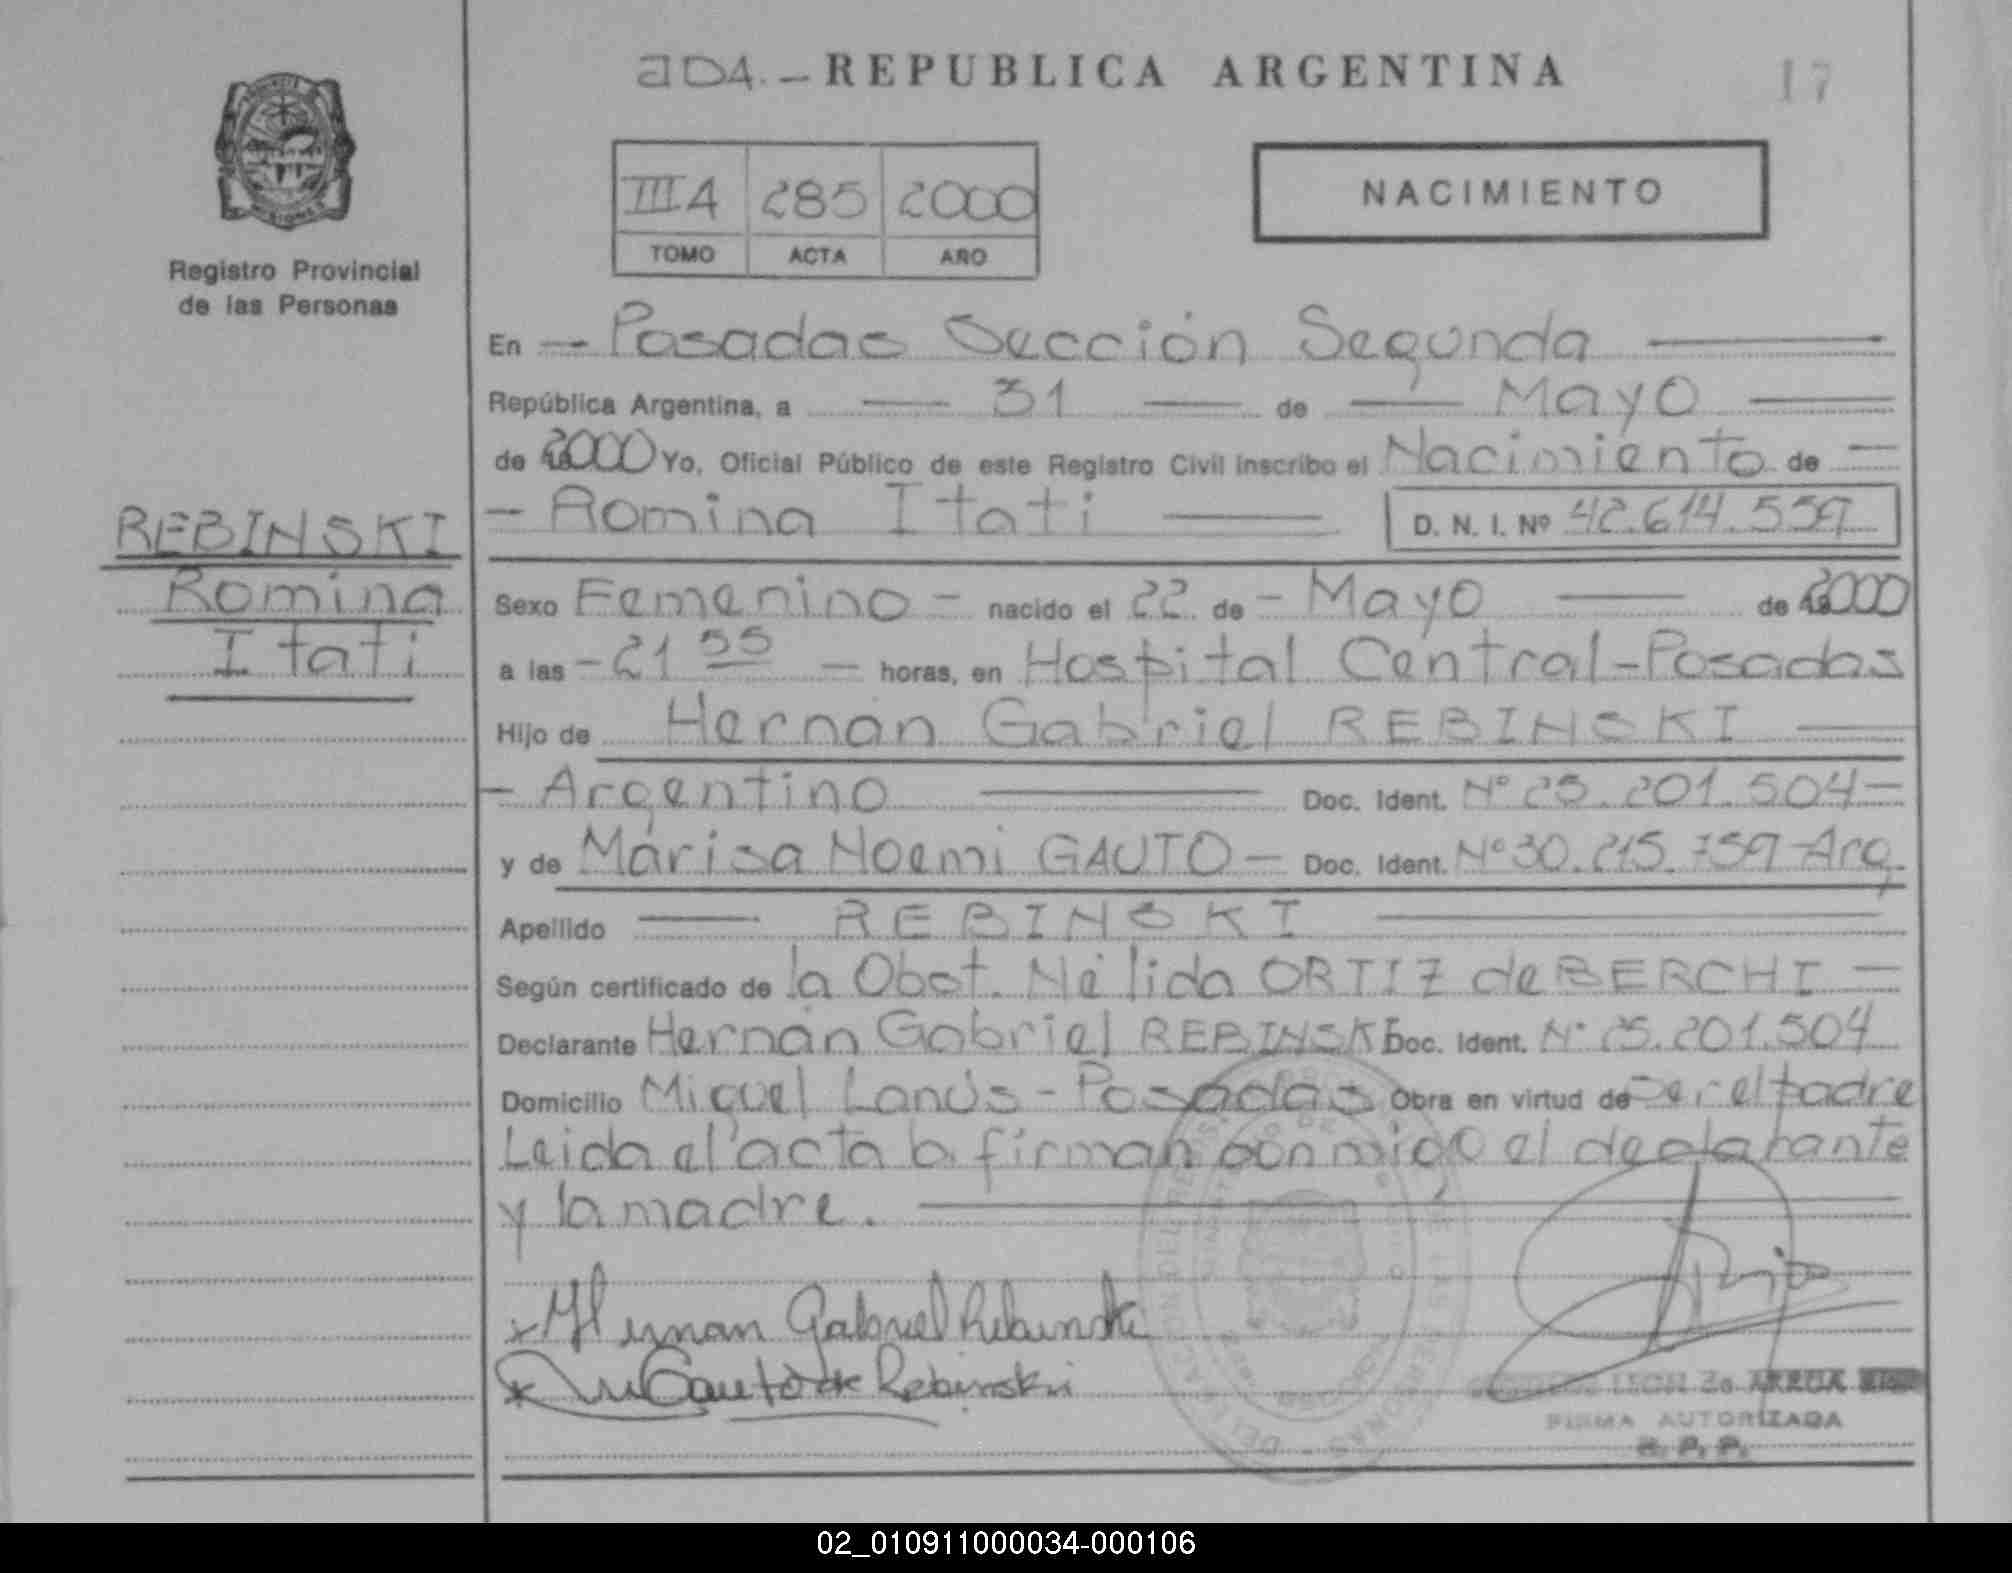 204.- REPUBLICA ARGENTINA
17
III4 285 2000
TOMO ACTA AÑO
NACIMIENTO
Registro Provincial
de las Personas
En - Posadas Sección Segunda
República Argentina, a 31 de Mayo
de 2000 Yo, Oficial Público de este Registro Civil inscribo el Nacimiento de -
- Romina Itati D. N. I. Nº 42.614.559
REBINSKI
Romina
Itati
Sexo Femenino - nacido el 22 de - Mayo de 2000
a las - 21 55 - horas, en Hospital Central-Posadas
Hijo de Hernán Gabriel REBINSKI
- Argentino Doc. Ident. Nº 25.201.504-
y de Marisa Noemi GAUTO - Doc. Ident. Nº 30.215.759-Arg.
Apellido REBINSKI
Según certificado de la Obst. Nélida ORTIZ de BERCHI -
Declarante Hernán Gabriel REBINSKI Doc. Ident. Nº 25.201.504
Domicilio Miguel Lanús - Posadas Obra en virtud de Ser el padre
Leida el acta la firman conmigo el declarante
y la madre.
Hernan Gabriel Rebinski
Gauto de Rebinski
FIRMA AUTORIZADA
R. P. P.
02_010911000034-000106